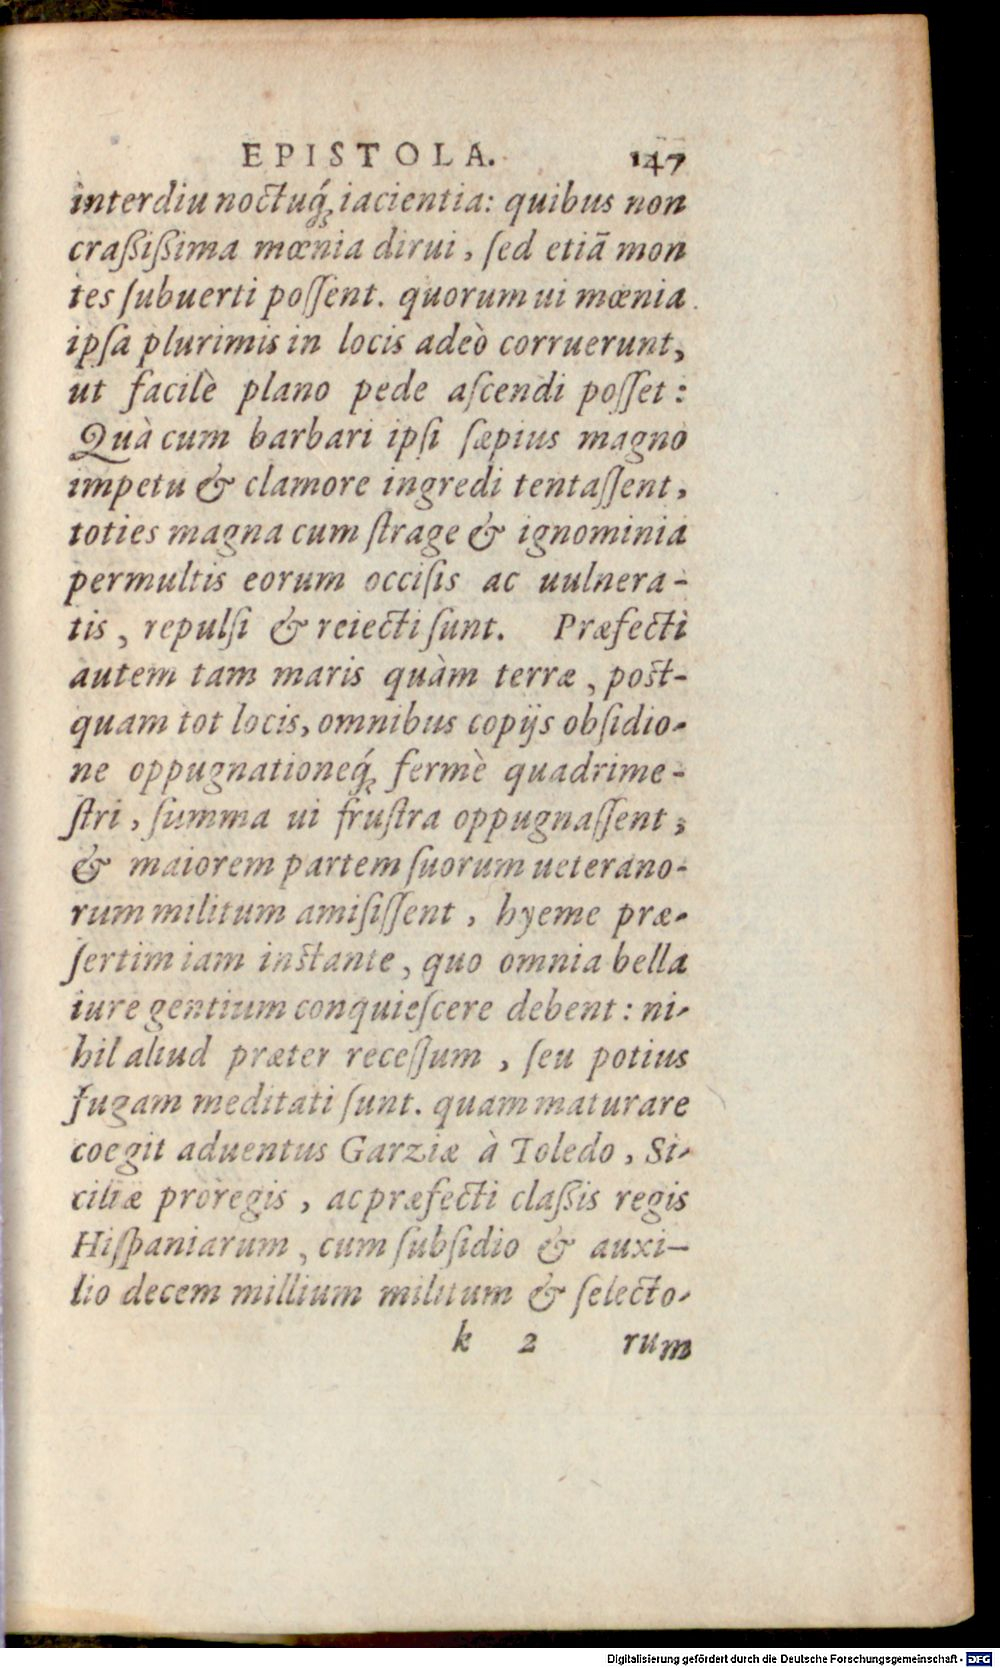 EPISTOLA. 147
interdiu noctuq́; iacientia: quibus non
craßißima mœnia dirui, ſed etiā mon
tes ſubuerti poſſent. quorum ui mœnia
ipſa plurimis in locis adeò corruerunt,
ut facilè plano pede aſcendi poſſet:
Quà cum barbari ipſi ſæpius magno
impetu & clamore ingredi tentaſſent,
toties magna cum ſtrage & ignominia
permultis eorum occiſis ac uulnera-
tis, repulſi & reiecti ſunt. Præfecti
autem tam maris quàm terræ, post-
quam tot locis, omnibus copijs obſidio-
ne oppugnationeq́; fermè quadrime-
ſtri, ſumma ui fruſtra oppugnaſſent,
& maiorem partem ſuorum ueterano-
rum militum amiſiſſent, hyeme præ-
ſertim iam instante, quo omnia bella
iure gentium conquieſcere debent: ni-
hil aliud præter receſſum, ſeu potius
fugam meditati ſunt. quam maturare
coegit aduentus Garziæ à Toledo, Si-
ciliæ proregis, ac præfecti claßis regis
Hiſpaniarum, cum ſubſidio & auxi-
lio decem millium militum & ſelecto-
k 2 rum
Digitalisierung gefördert durch die Deutsche Forschungsgemeinschaft - DFG